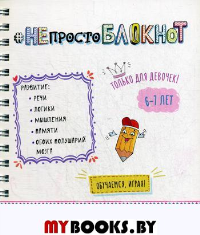 #НЕпростоБЛОКНоТ
ТОЛЬКО ДЛЯ ДЕВОЧЕК!
6-7 ЛЕТ
РАЗВИТИЕ:
• РЕЧИ
• ЛОГИКИ
• МЫШЛЕНИЯ
• ПАМЯТИ
• ОБОИХ ПОЛУШАРИЙ
МОЗГА
ОБУЧАЕМСЯ, ИГРАЯ!
MYBOOKS.BY